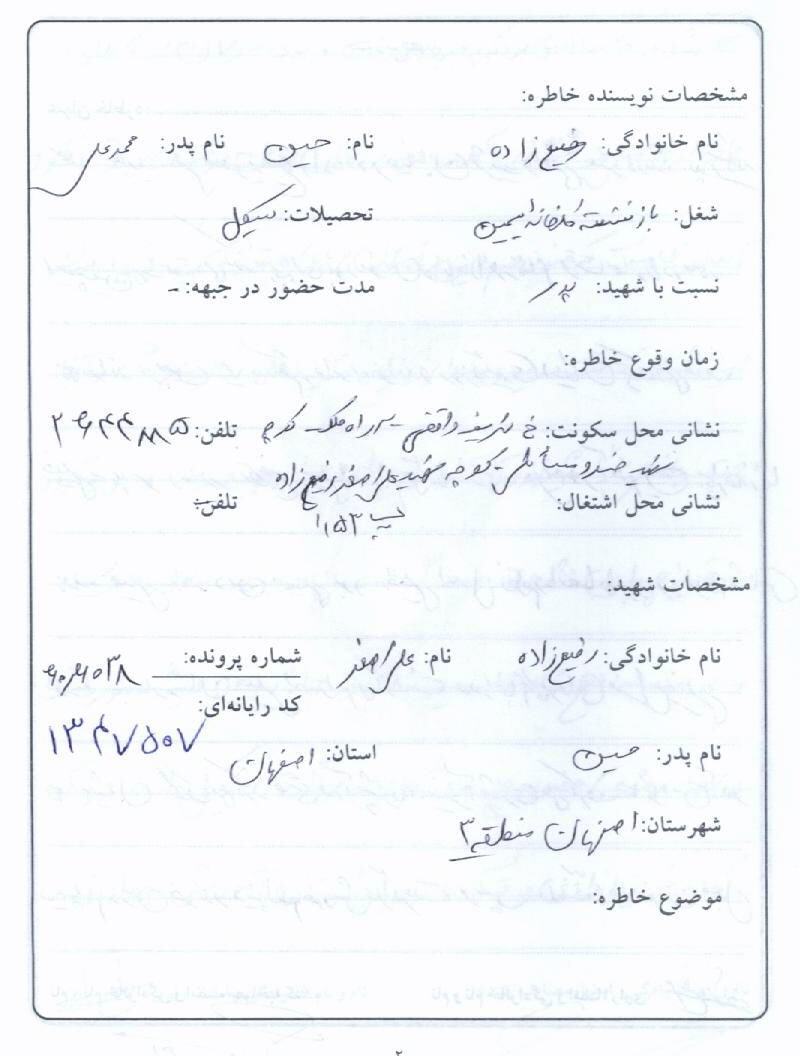 مشخصات نویسنده خاطره:
نام خانوادگی: رفیع زاده نام: حسین نام پدر: محمدعلی
شغل: بازنشسته کارخانه سیمین تحصیلات: سیکل
نسبت با شهید: پدر مدت حضور در جبهه: -
زمان وقوع خاطره:
نشانی محل سکونت: خ شریف واقفی - سه راه ملک تلفن:
کوچه شهید علی اصغر رفیع زاده
نشانی محل اشتغال: تلفن:
پ ۱۵۳
مشخصات شهید:
نام خانوادگی: رفیع زاده نام: علی اصغر شماره پرونده:
کد رایانه‌ای:
۱۳۴۷۵۰۷
نام پدر: حسین استان: اصفهان
شهرستان: اصفهان منطقه ۳
موضوع خاطره:
۲